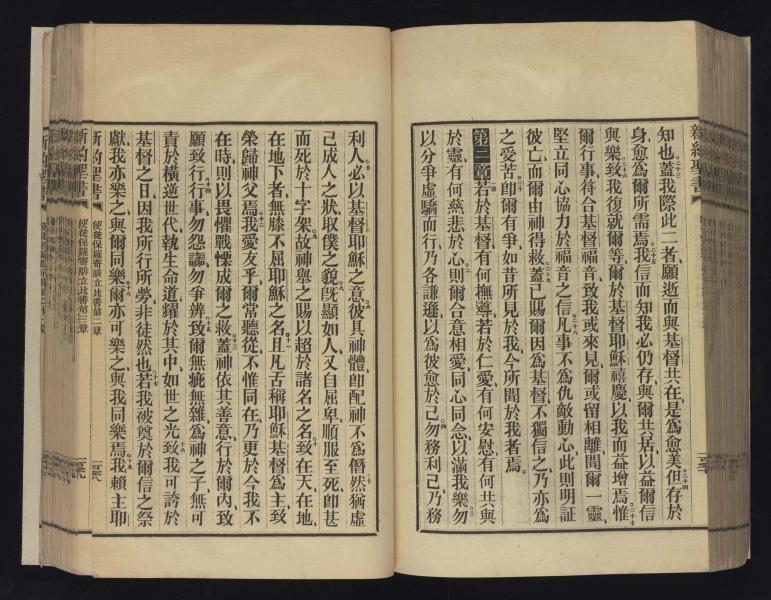 新約聖書
知也蓋我際此二者願逝而與基督共在是爲愈美但存於
身愈爲爾所需焉我信而知我必仍存與爾共居以益爾信
與樂致我復就爾等爾於基督耶穌禧慶以我而益增焉惟
爾行事符合基督福音致我或來見爾或留相離聞爾一靈
堅立同心協力於福音之信凡事不爲仇敵動心此則明証
彼亡而爾由神得救蓋已賜爾因爲基督不獨信之乃亦爲
之受苦卽爾有爭如昔所見於我今所聞於我者焉
第二章若於基督有何撫導若於仁愛有何安慰有何共與
於靈有何慈悲於心則爾合意相愛同心同念以滿我樂勿
以分爭虛驕而行乃各謙遜以爲彼愈於己勿務利己乃務
利人必以基督耶穌之意彼具神體卽配神不爲僭然猶虛
己成人之狀取僕之貌旣顯如人又自屈卑順服至死卽甚
而死於十字架故神舉之賜以超於諸名之名致在天在地
在地下者無膝不屈耶穌之名且凡舌稱耶穌基督爲主致
榮歸神父焉我愛友乎爾常聽從不惟同在乃更於今我不
在時則以畏懼戰慄成爾之救蓋神依其善意行於爾內致
願致行行事勿怨讟勿爭辨致爾無疵無雜爲神之子無可
責於橫逆世代執生命道耀於其中如世之光致我可誇於
基督之日因我所行所勞非徒然也若我被奠於爾信之祭
獻我亦樂之與爾同樂爾亦可樂之與我同樂焉我賴主耶
新約聖書 使徒保羅寄腓立比書第二章